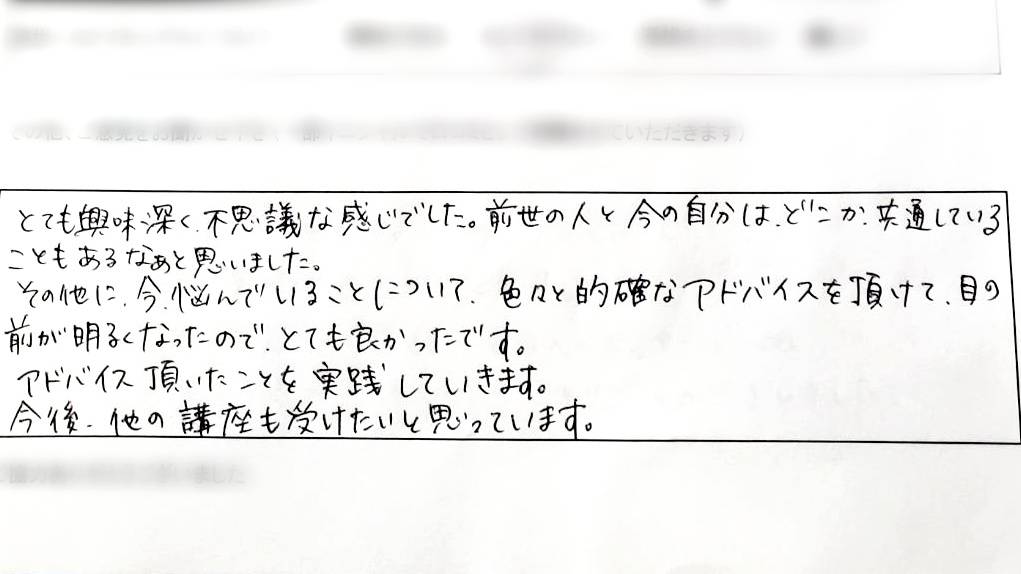 ていただきます)
とても興味深く、不思議な感じでした。前世の人と今の自分は、どこか、共通している
こともあるなぁと思いました。
その他に、今、悩んでいることについて、色々と的確なアドバイスを頂けて、目の
前が明るくなったので、とても良かったです。
アドバイス頂いたことを実践していきます。
今後、他の講座も受けたいと思っています。